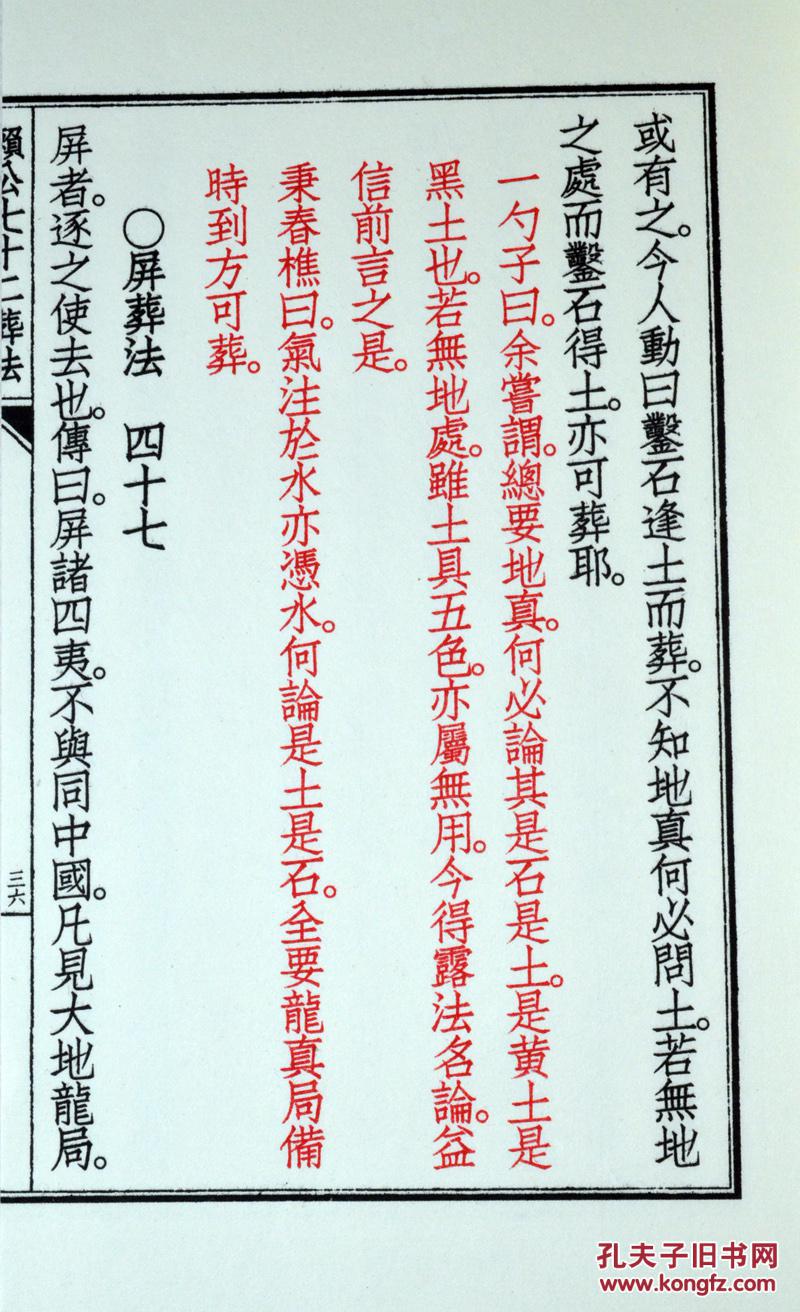 或有之。今人動曰鑿石逢土而葬。不知地真何必問土。若無地
之處而鑿石得土。亦可葬耶。
一勺子曰。余嘗謂。總要地真。何必論其是石是土。是黄土是
黑土也。若無地處。雖土具五色。亦屬無用。今得露法名論。益
信前言之是。
秉春樵曰。氣注於水亦憑水。何論是土是石。全要龍真局備
時到方可葬。
○屏葬法 四十七
屏者。逐之使去也。傳曰。屏諸四夷。不與同中國。凡見大地龍局。
賴公七十二葬法
三六
孔夫子旧书网
www.kongfz.com